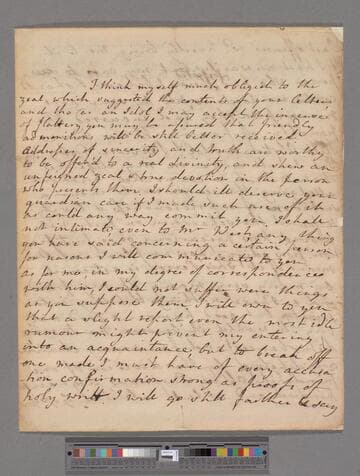 I think myself much obliged to the
zeal, which suggested the contents of your letters
and tho' as an Idol I may accept the incense
of flattery you may be assured that friendly
admonitions will be still better received
Addresses of sincerity and truth are worthy
to be offer'd to a real divinity, and shew an
unfeigned zeal & true devotion in the person
who presents them I should ill deserve your
guardian care if I made such use of it
as could any way commit you, I shall
not intimate even to Mr West any thing
you have said concerning a certain person
for reasons I will communicate to you
as for me in my degree of correspondences
with him, I would not suffer were things
as you suppose them, I will own to you
that a slight report even the most idle
rumour might prevent my entering
into an acquaintance, but to break off
one made I must have of every accusa
tion confirmation strong as proofs of
holy writ I will go still farther & say